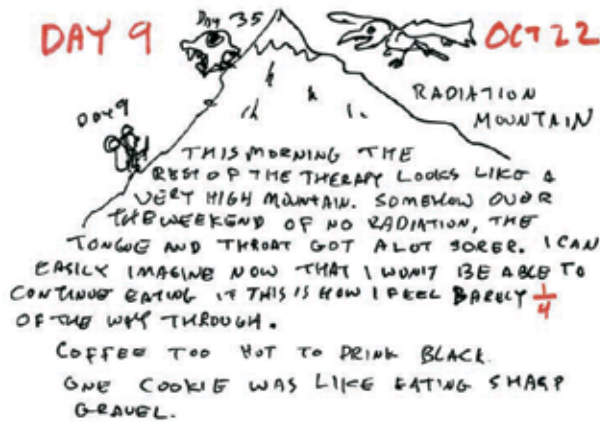 DAY 9
DAY 35
OCT 22
DAY 9
RADIATION
MOUNTAIN
THIS MORNING THE
REST OF THE THERAPY LOOKS LIKE A
VERY HIGH MOUNTAIN. SOMEHOW OVER
THE WEEKEND OF NO RADIATION, THE
TONGUE AND THROAT GOT A LOT SORER. I CAN
EASILY IMAGINE NOW THAT I WON'T BE ABLE TO
CONTINUE EATING IF THIS IS HOW I FEEL BARELY 1/4
OF THE WAY THROUGH.
COFFEE TOO HOT TO DRINK BLACK.
ONE COOKIE WAS LIKE EATING SHARP
GRAVEL.